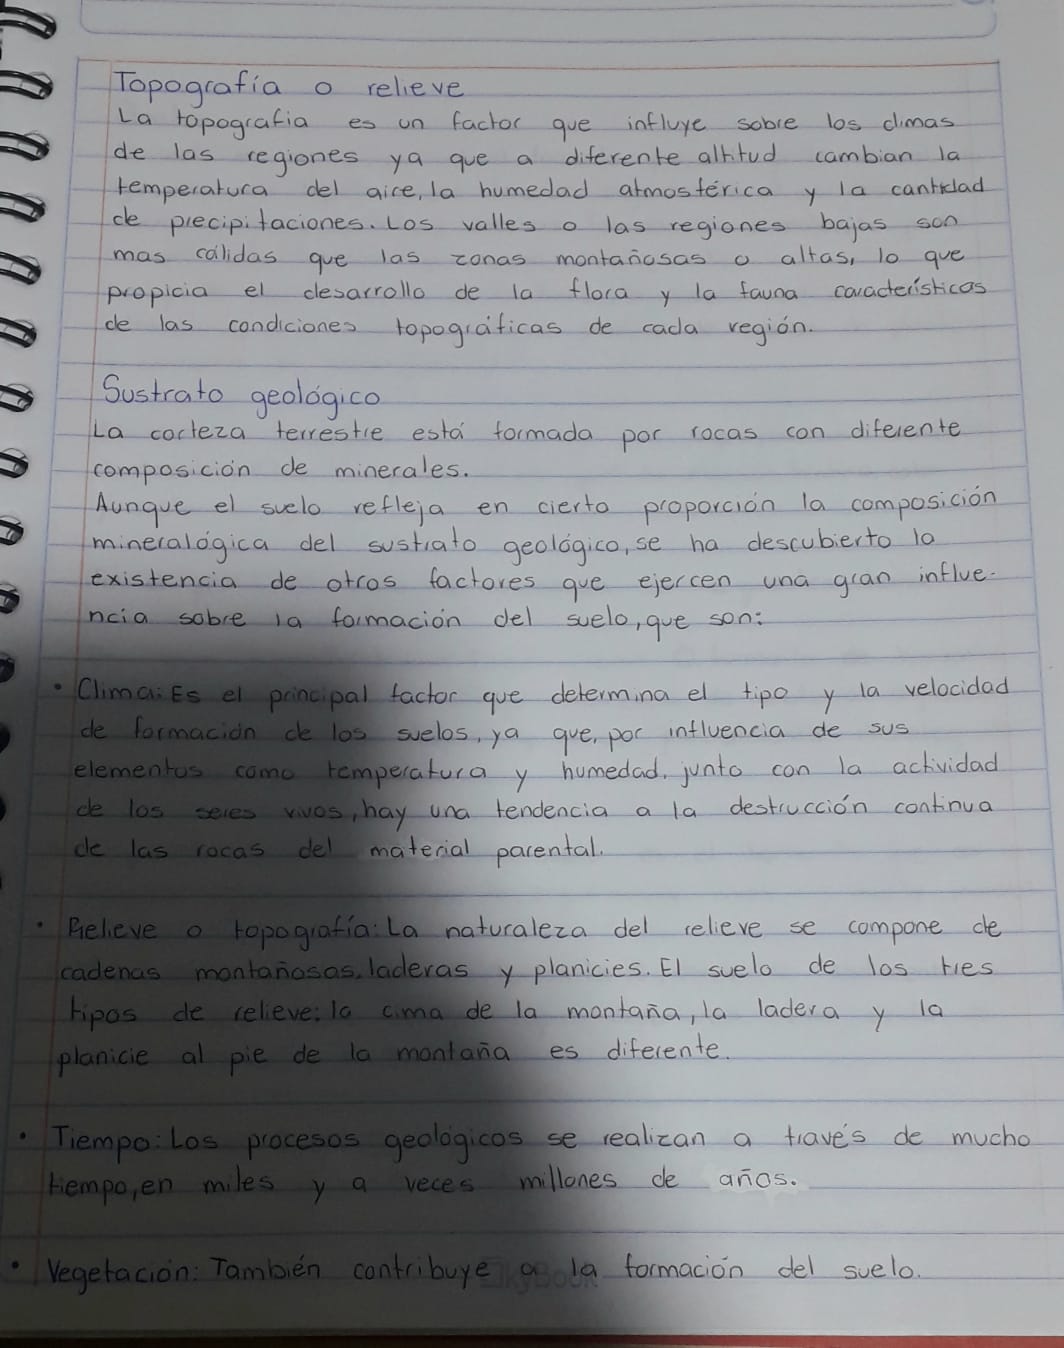 Topografía o relieve
La topografia es un factor que influye sobre los climas
de las regiones ya que a diferente altitud cambian la
temperatura del aire, la humedad atmosférica y la cantidad
de precipitaciones. Los valles o las regiones bajas son
mas cálidas que las zonas montañosas o altas, lo que
propicia el desarrollo de la flora y la fauna características
de las condiciones topográficas de cada región.
Sustrato geológico
La corteza terrestre está formada por rocas con diferente
composición de minerales.
Aunque el suelo refleja en cierta proporción la composición
mineralógica del sustrato geológico, se ha descubierto la
existencia de otros factores que ejercen una gran influe-
ncia sobre la formación del suelo, que son:
• Clima: Es el principal factor que determina el tipo y la velocidad
de formación de los suelos, ya que, por influencia de sus
elementos como temperatura y humedad, junto con la actividad
de los seres vivos, hay una tendencia a la destrucción continua
de las rocas del material parental.
• Relieve o topografía: La naturaleza del relieve se compone de
cadenas montañosas, laderas y planicies. El suelo de los tres
tipos de relieve; la cima de la montaña, la ladera y la
planicie al pie de la montaña es diferente.
• Tiempo: Los procesos geológicos se realizan a través de mucho
tiempo, en miles y a veces millones de años.
• Vegetación: También contribuye a la formación del suelo.